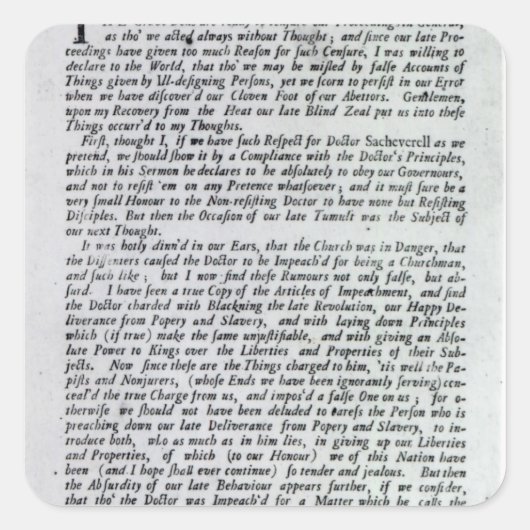 as tho' we acted always without Thought; and since our late Pro-
ceedings have given too much Reason for such Censure, I was willing to
declare to the World, that tho' we may be misled by false Accounts of
Things given by Ill-designing Persons, yet we scorn to persist in our Error
when we have discover'd our Cloven Foot of our Abettors. Gentlemen,
upon my Recovery from the Heat our late Blind Zeal put us into these
Things occurr'd to my Thoughts.
First, thought I, if we have such Respect for Doctor Sacheverell as we
pretend, we should show it by a Compliance with the Doctor's Principles,
which in his Sermon he declares to be absolutely to obey our Governours,
and not to resist 'em on any Pretence whatsoever; and it must sure be a
very small Honour to the Non-resisting Doctor to have none but Resisting
Disciples. But then the Occasion of our late Tumult was the Subject of
our next Thought.
It was hotly dinn'd in our Ears, that the Church was in Danger, that
the Dissenters caused the Doctor to be Impeach'd for being a Churchman,
and such like; but I now find these Rumours not only false, but ab-
surd. I have seen a true Copy of the Articles of Impeachment, and find
the Doctor charded with Blackning the late Revolution, our Happy De-
liverance from Popery and Slavery, and with laying down Principles
which (if true) make the same unjustifiable, and with giving an Abso-
lute Power to Kings over the Liberties and Properties of their Sub-
jects. Now since these are the Things charged to him, 'tis well the Pa-
pists and Nonjurers, (whose Ends we have been ignorantly serving) con-
ceal'd the true Charge from us, and impos'd a false One on us; for o-
therwise we should not have been deluded to caress the Person who is
preaching down our late Deliverance from Popery and Slavery, to in-
troduce both, who as much as in him lies, in giving up our Liberties
and Properties, of which (to our Honour) we of this Nation have
been (and I hope shall ever continue) so tender and jealous. But then
the Absurdity of our late Behaviour appears further, if we consider,
that tho' the Doctor was Impeach'd for a Matter which he calls the